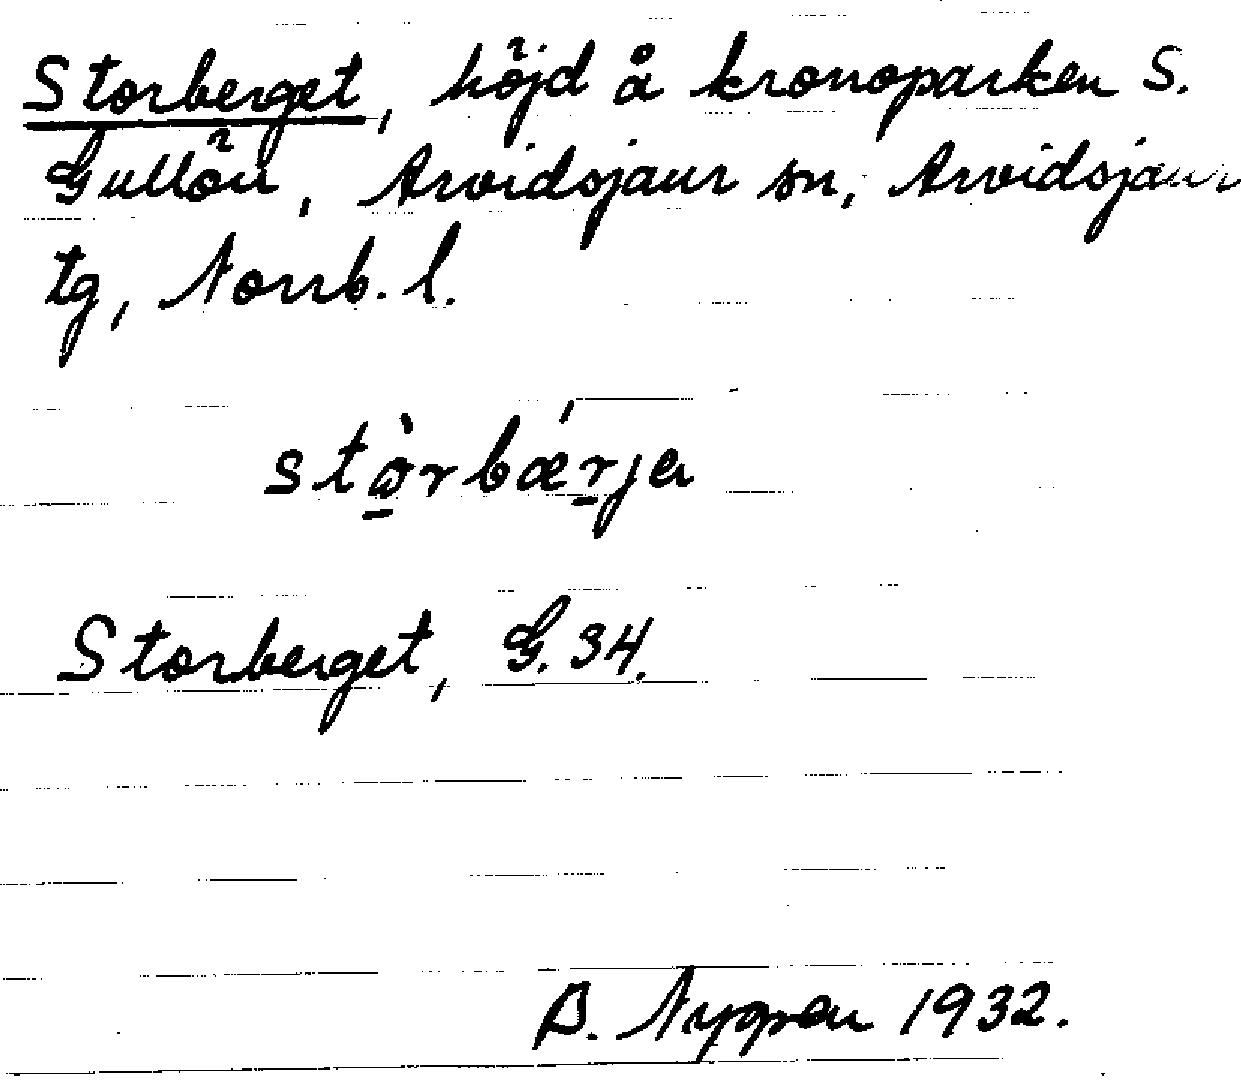 Storberget, höjd å kronoparken S.
Gullön, Arvidsjaur sn, Arvidsjaur
tg, Norrb. l.
stòrbǽrja
Storberget, G. 34.
B. Nygren 1932.